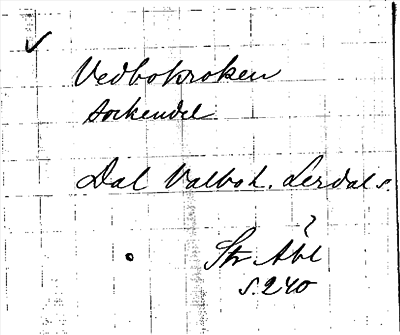 ✓
Vedbokroken
sockendel
Dal Valbo h. Lerdal s.
?
Str Åbl
s. 240